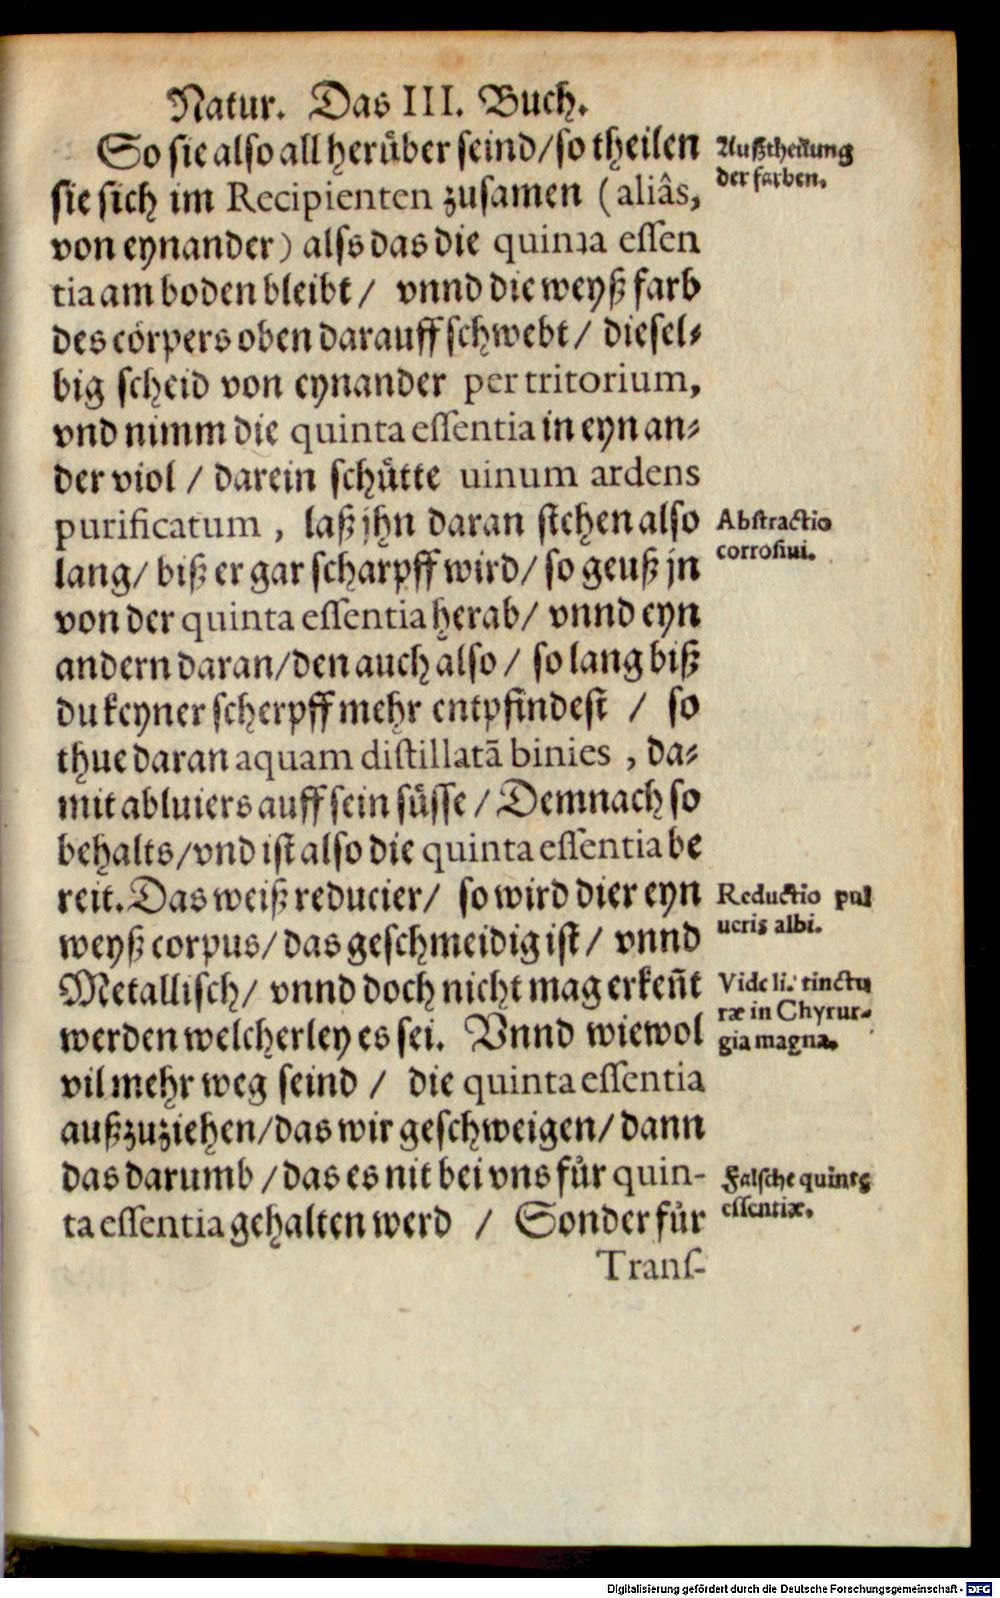 Natur. Das III. Buch.
So sie also all herüber seind/so theilen
sie sich im Recipienten zusamen (aliâs,
von eynander) alss das die quinta essen
tia am boden bleibt/ vnnd die weyß farb
des cörpers oben darauff schwebt/ diesel⸗
big scheid von eynander per tritorium,
vnd nimm die quinta essentia in eyn an⸗
der viol / darein schütte uinum ardens
purificatum, laß jhn daran stehen also
lang/ biß er gar scharpff wird/ so geuß jn
von der quinta essentia herab/ vnnd eyn
andern daran/den auch also/ so lang biß
du keyner scherpff mehr entpfindest / so
thue daran aquam distillatã binies, da⸗
mit abluiers auff sein süsse/ Demnach so
behalts/vnd ist also die quinta essentia be
reit. Das weiß reducier/ so wird dier eyn
weyß corpus/ das geschmeidig ist/ vnnd
Metallisch/ vnnd doch nicht mag erkeñt
werden welcherley es sei. Vnnd wiewol
vil mehr weg seind / die quinta essentia
außzuziehen/das wir geschweigen/ dann
das darumb/das es nit bei vns für quin-
ta essentia gehalten werd / Sonder für
Trans-
Außtheilung
der farben.
Abstractio
corrosiui.
Reductio pul
ueris albi.
Vide li. tinctu
ræ in Chyrur⸗
gia magna.
Falsche quintę
essentiæ.
Digitalisierung gefördert durch die Deutsche Forschungsgemeinschaft - DFG